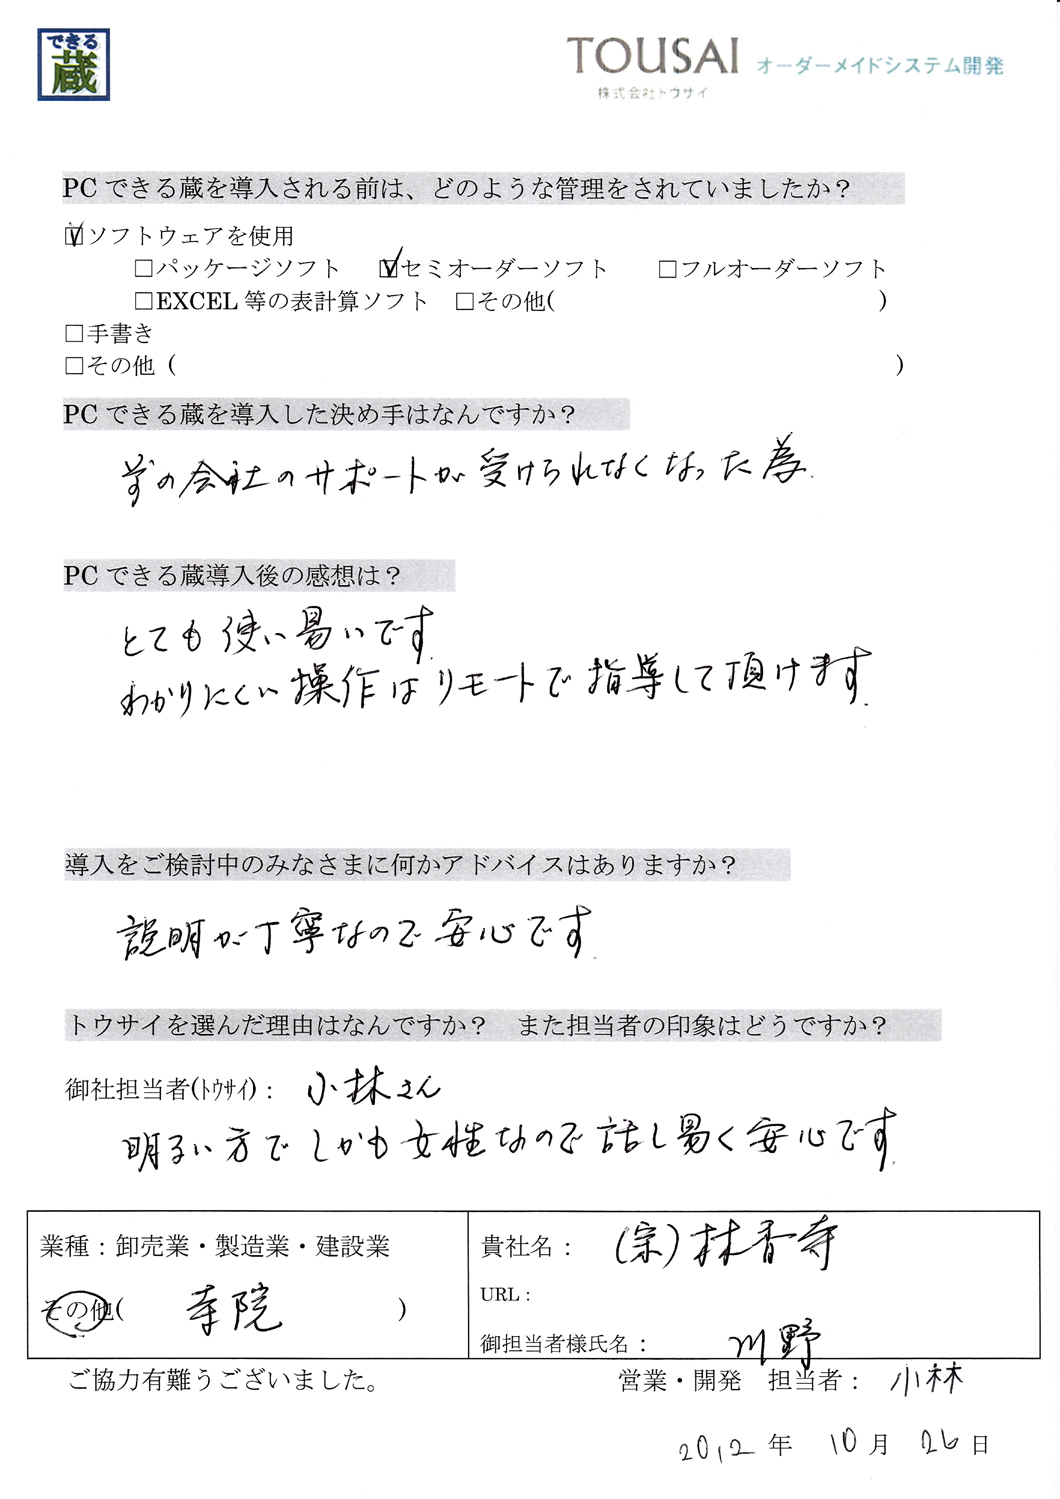 できる
蔵
TOUSAI オーダーメイドシステム開発
株式会社トウサイ
PCできる蔵を導入される前は、どのような管理をされていましたか？
☑ソフトウェアを使用
□パッケージソフト ☑セミオーダーソフト □フルオーダーソフト
□EXCEL等の表計算ソフト □その他( )
□手書き
□その他 ( )
PCできる蔵を導入した決め手はなんですか？
前の会社のサポートが受けられなくなった為.
PCできる蔵導入後の感想は？
とても使い易いです.
わかりにくい操作はリモートで指導して頂けます.
導入をご検討中のみなさまに何かアドバイスはありますか？
説明が丁寧なので安心です.
トウサイを選んだ理由はなんですか？ また担当者の印象はどうですか？
御社担当者(ﾄｳｻｲ)： 小林さん
明るい方でしかも女性なので話し易く安心です.
業種：卸売業・製造業・建設業
その他( 寺院 )
貴社名： (宗)林香寺
URL：
御担当者様氏名： 川野
ご協力有難うございました。 営業・開発 担当者： 小林
2012年 10月 26日